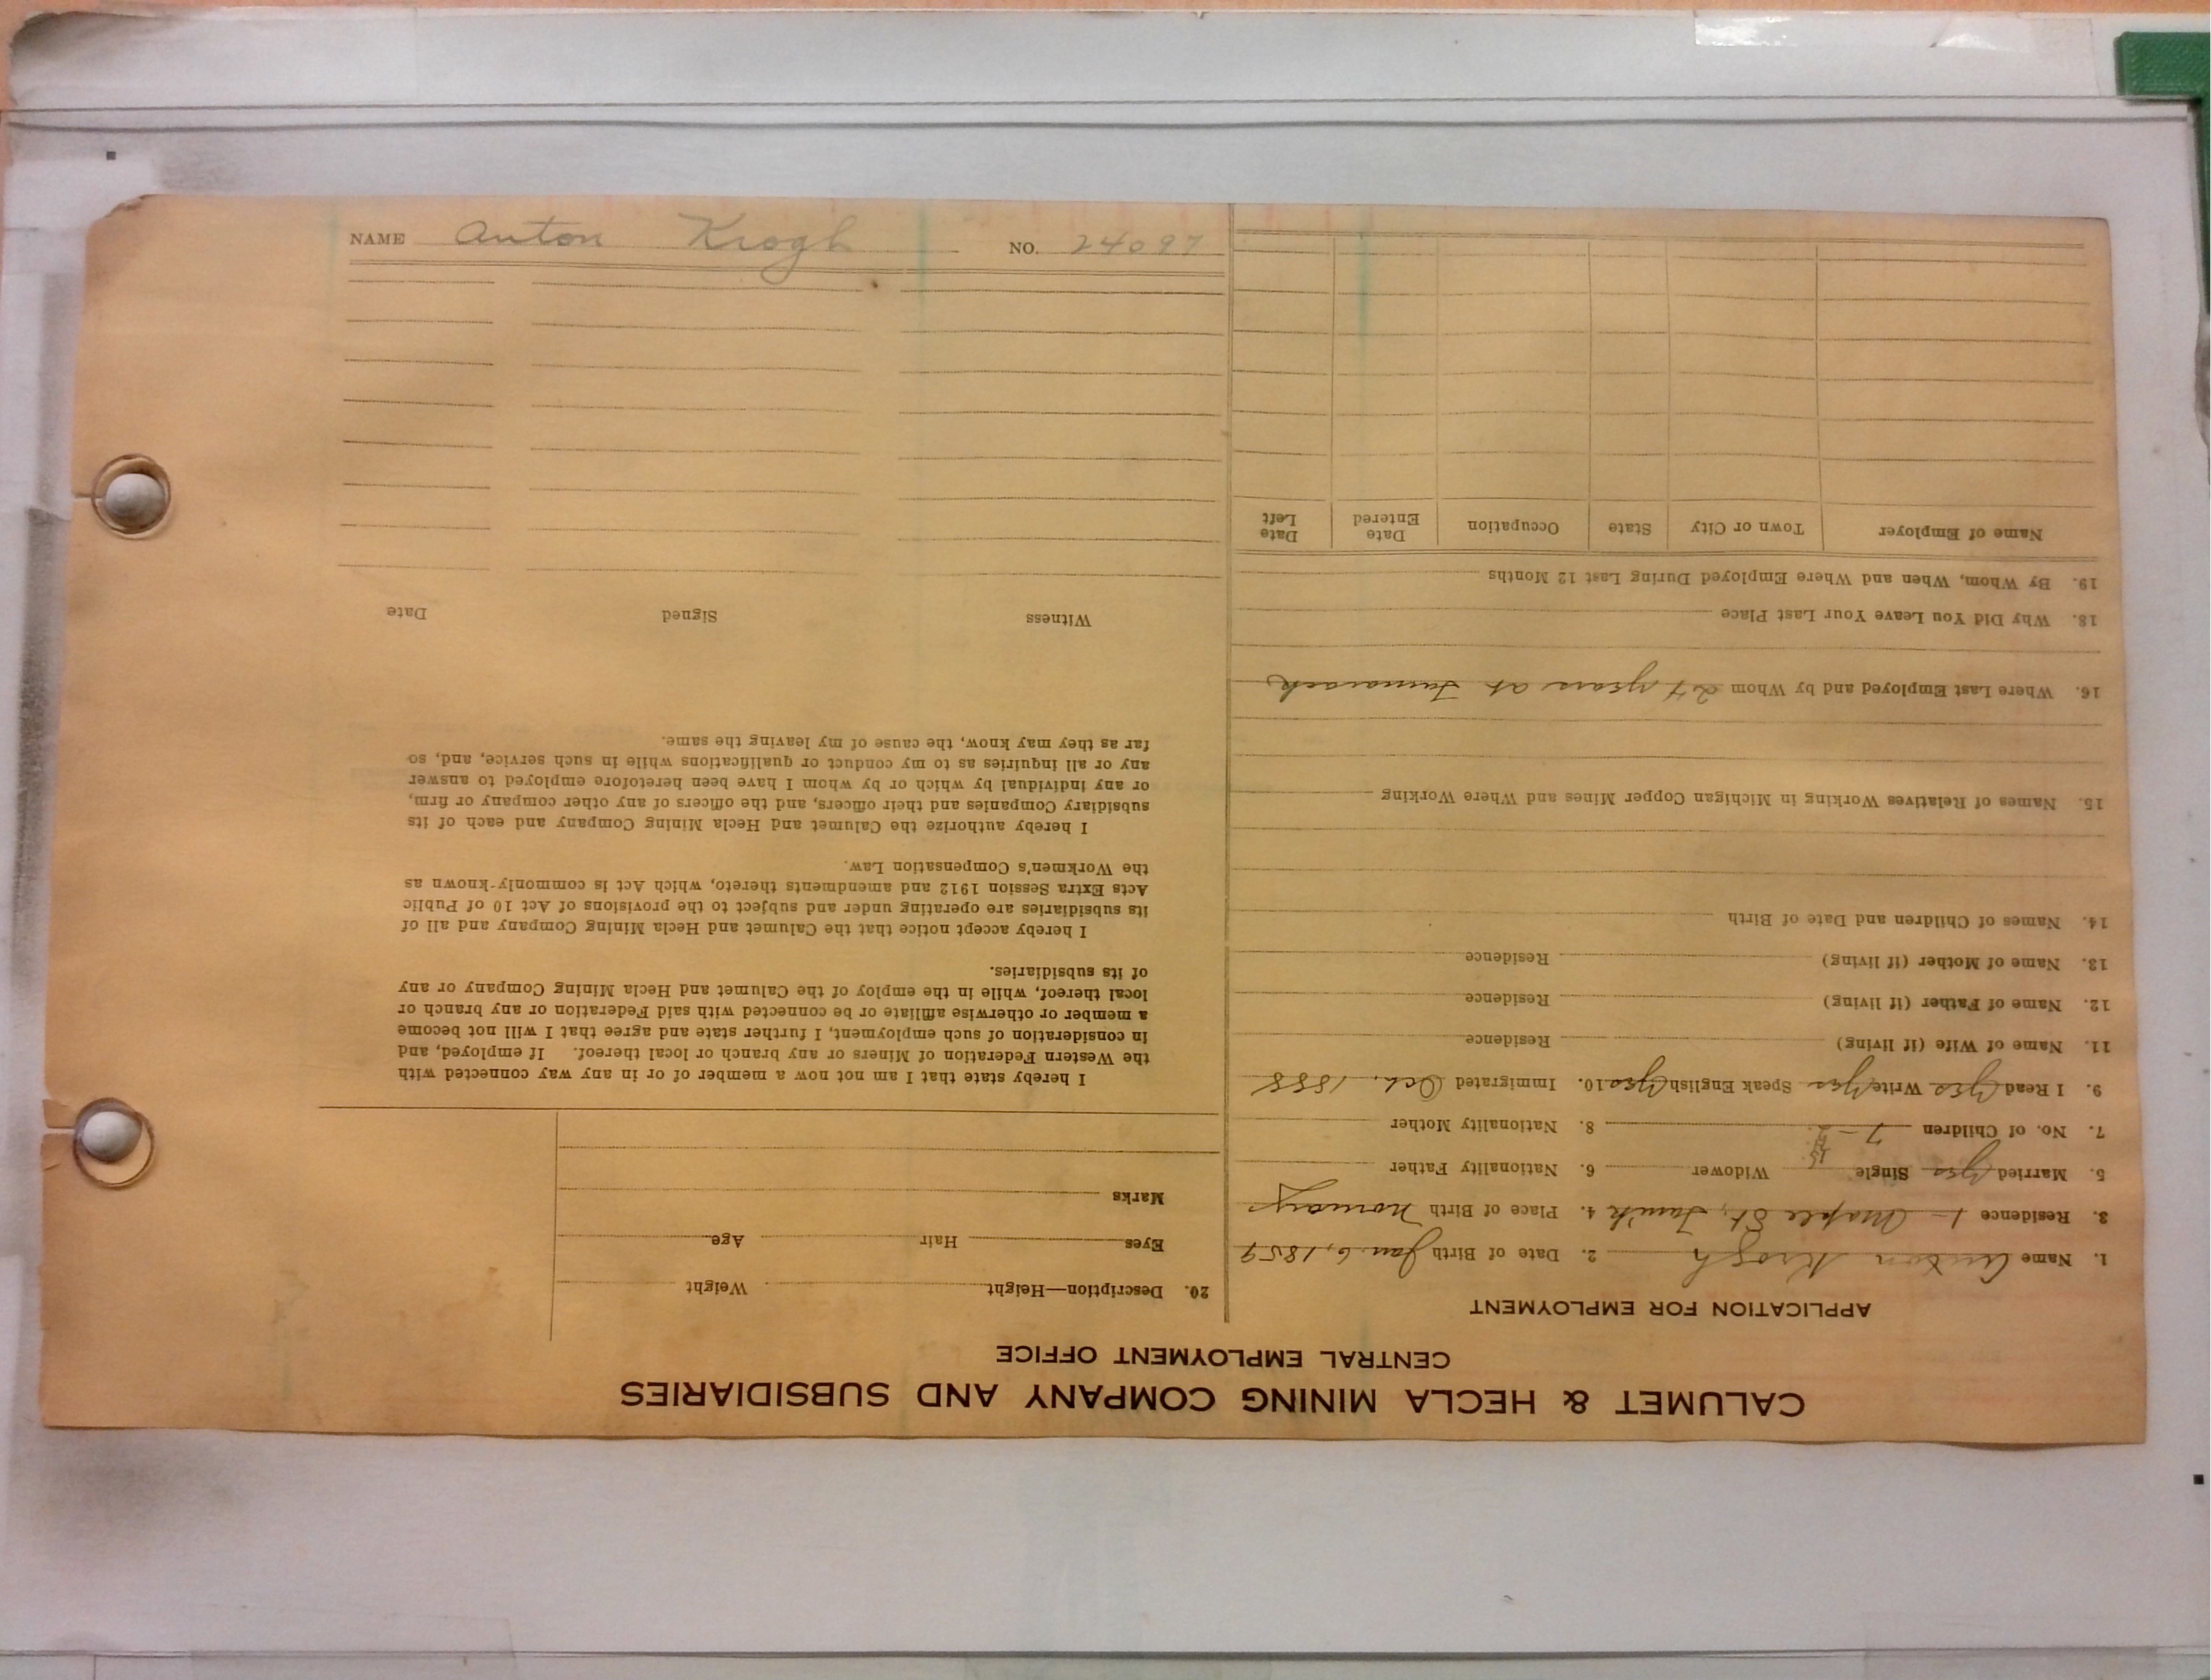 CALUMET & HECLA MINING COMPANY AND SUBSIDIARIES
CENTRAL EMPLOYMENT OFFICE
APPLICATION FOR EMPLOYMENT
1. Name Anton Krogh 2. Date of Birth Jan. 6, 1859
3. Residence 1 - Maple St., Tam'k 4. Place of Birth Norway
5. Married Yes Single Widower 6. Nationality Father
7. No. of Children 7 - 8. Nationality Mother
9. I Read Yes Write Yes Speak English Yes 10. Immigrated Oct. 1888
11. Name of Wife (if living) Residence
12. Name of Father (if living) Residence
13. Name of Mother (if living) Residence
14. Names of Children and Date of Birth
15. Names of Relatives Working in Michigan Copper Mines and Where Working
16. Where Last Employed and by Whom 24 years at Tamarack
18. Why Did You Leave Your Last Place
19. By Whom, When and Where Employed During Last 12 Months
Name of Employer Town or City State Occupation Date Entered Date Left
20. Description—Height Weight
Eyes Hair Age
Marks
I hereby state that I am not now a member of or in any way connected with
the Western Federation of Miners or any branch or local thereof. If employed, and
in consideration of such employment, I further state and agree that I will not become
a member or otherwise affiliate or be connected with said Federation or any branch or
local thereof, while in the employ of the Calumet and Hecla Mining Company or any
of its subsidiaries.
I hereby accept notice that the Calumet and Hecla Mining Company and all of
its subsidiaries are operating under and subject to the provisions of Act 10 of Public
Acts Extra Session 1912 and amendments thereto, which Act is commonly-known as
the Workmen's Compensation Law.
I hereby authorize the Calumet and Hecla Mining Company and each of its
subsidiary Companies and their officers, and the officers of any other company or firm,
or any individual by which or by whom I have been heretofore employed to answer
any or all inquiries as to my conduct or qualifications while in such service, and, so
far as they may know, the cause of my leaving the same.
Witness Signed Date
NAME Anton Krogh NO. 24097